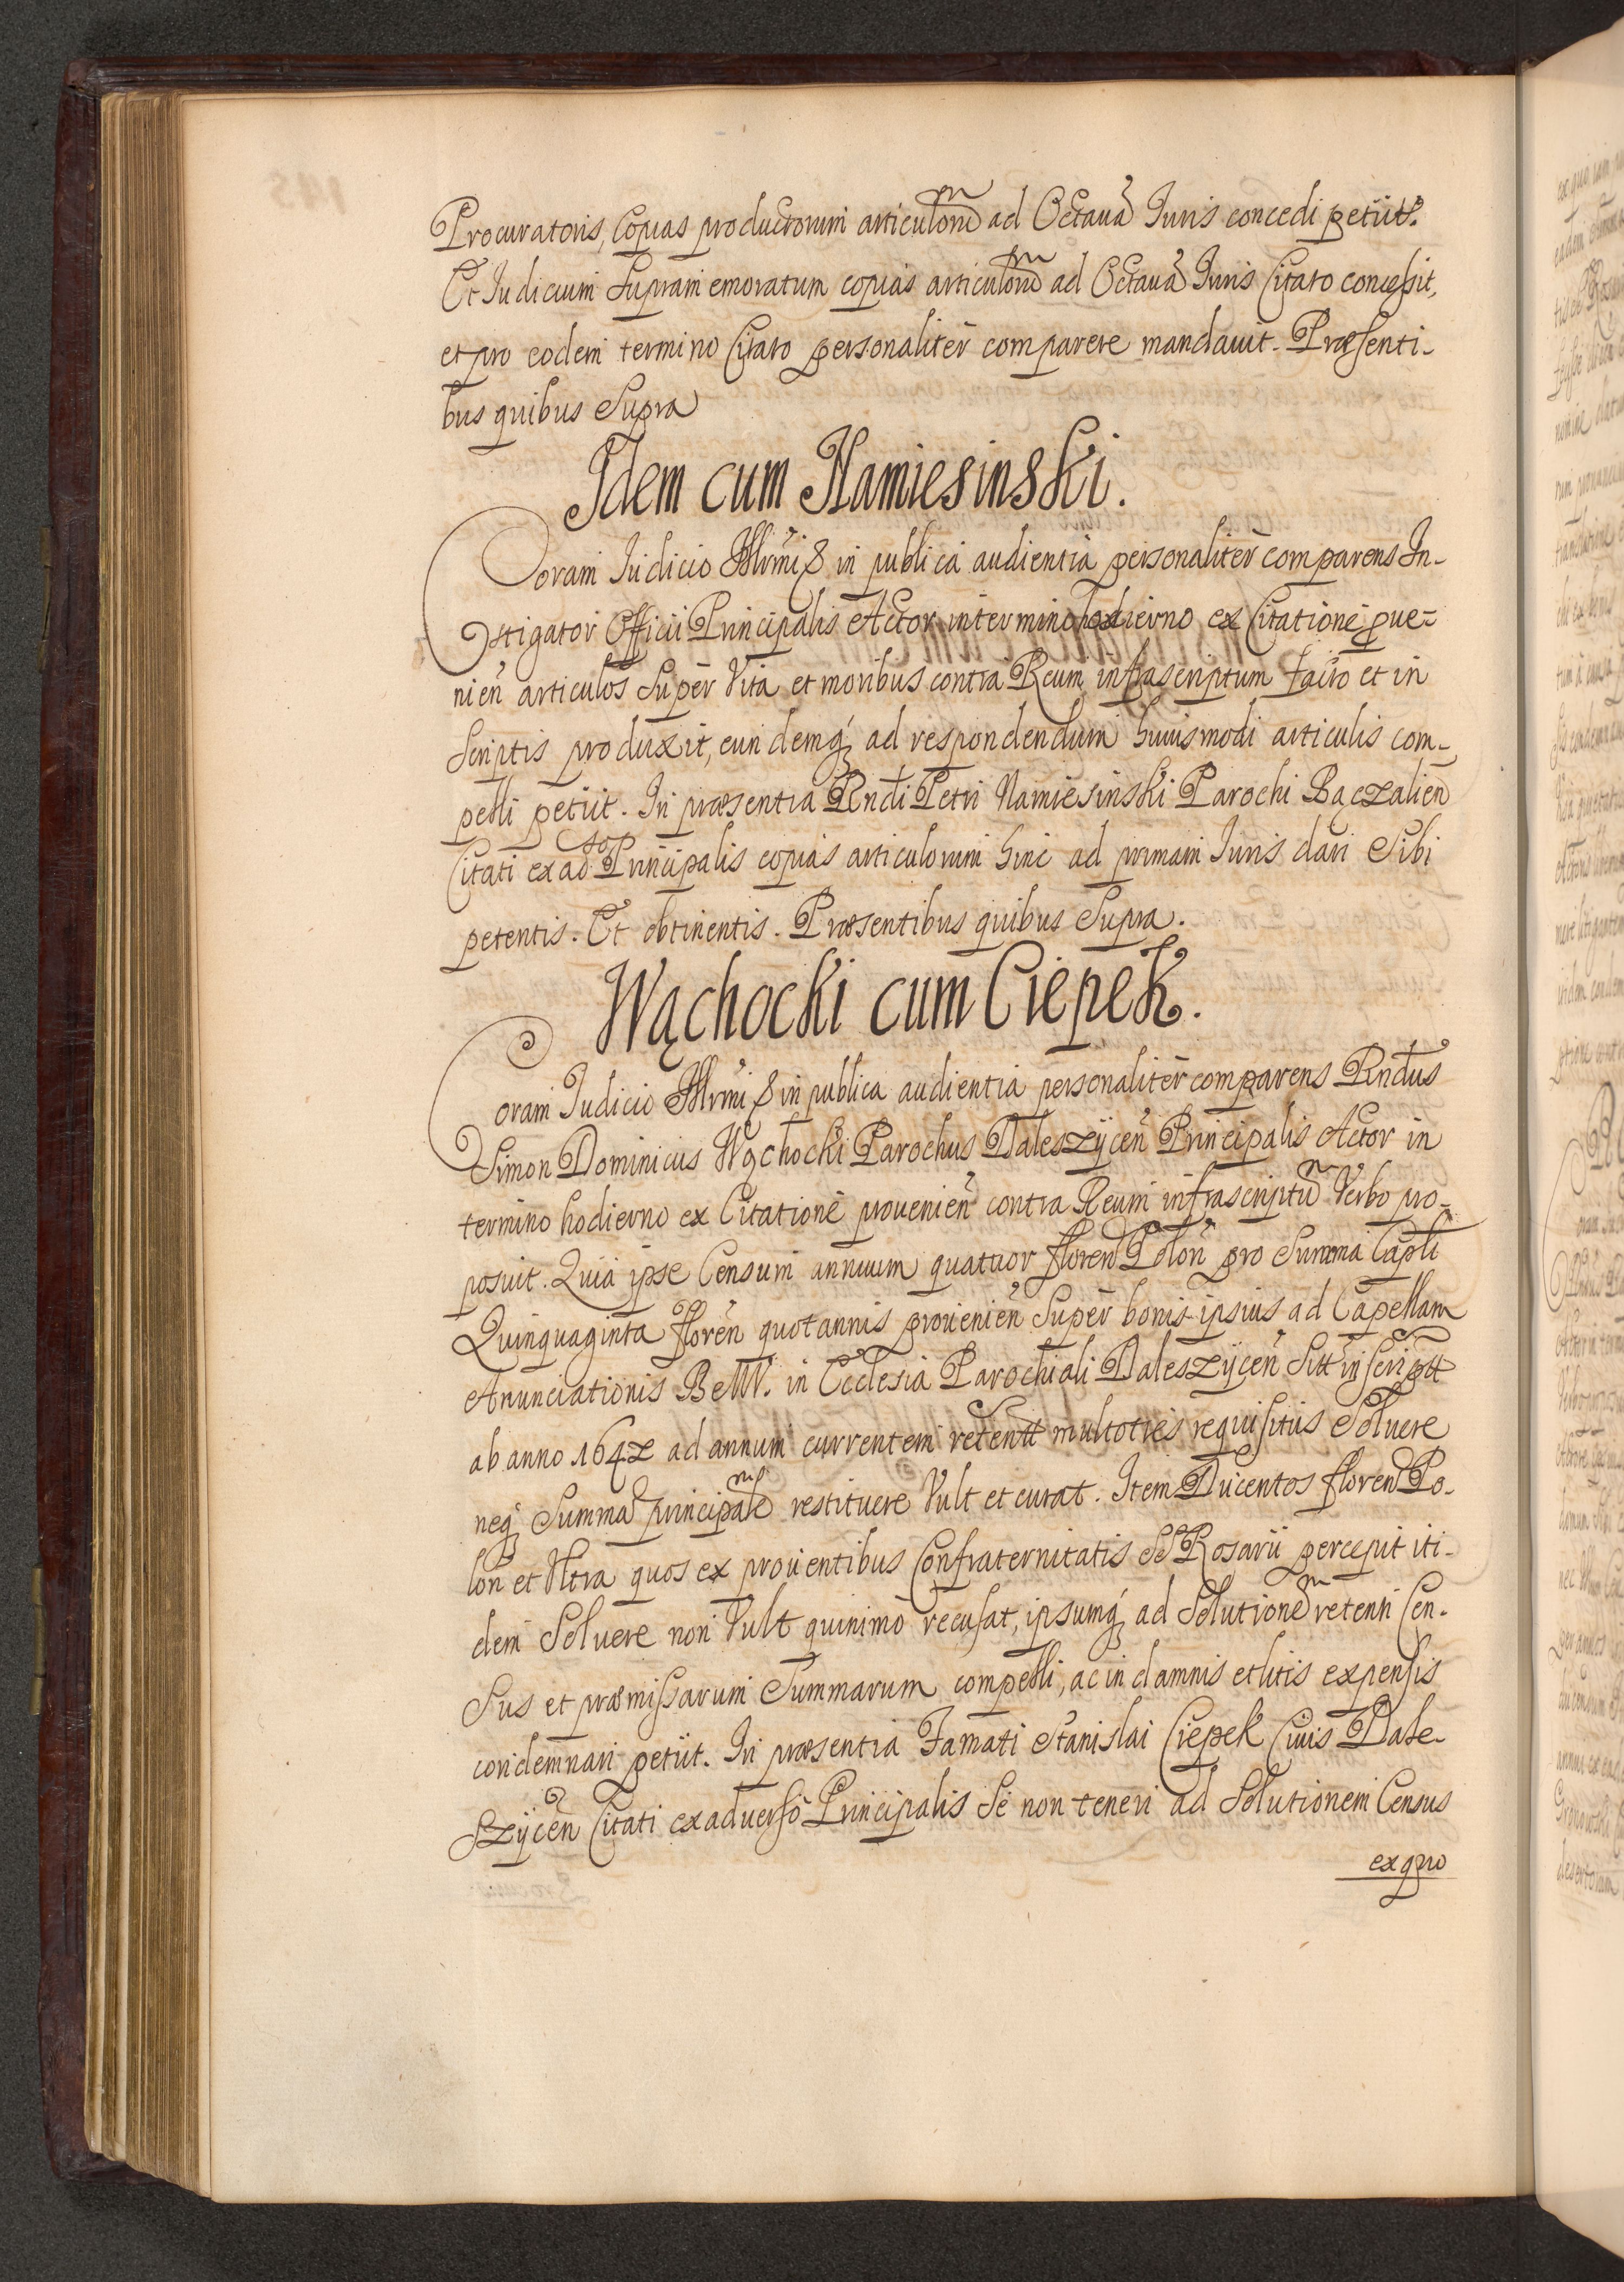 Procuratoris, Copias productorum articulorū ad Octauā Iuris concedi petiit.
Et Iudicium Supramemoratum copias articulorū ad Octauā Iuris Citato concessit,
et pro eodem termino Citato personaliter comparere mandauit. Præsenti-
bus quibus Supra
Idem cum Namiesinski.
Coram Iudicio Illrmi S in publica audientia personaliter comparens In-
stigator Officii Principalis Actor in termino hodierno ex Citatione proue-
nień articulos Super Vita et moribus contra Reum infrascriptum facto et in
Scriptis produxit, eundemq ad respondendum huiusmodi articulis com-
pelli petiit. In præsentia Rndi Petri Namiesinski Parochi Bączalień
Citati ex adso Principalis copias articulorum hinc ad primam Iuris dari Sibi
petentis. Et obtinentis. Præsentibus quibus Supra.
Wąchocki cum Ciepek.
Coram Iudicio Illrmi S in publica audientia personaliter comparens Rndus
Simon Dominicus Wąchocki Parochus Daleszÿceń Principalis Actor in
termino hodierno ex Citatione prouenień contra Reum infrascriptū Verbo pro-
posuit. Quia ipse Censum annuum quatuor floren Poloń pro Summa Capli
Quinquaginta floreń quotannis prouenień Super bonis ipsius ad Capellam
Anunciationis BeMV. in Ecclesia Parochiali Daleszÿceń Sitt inscriptt
ab anno 1642 ad annum currentem retentt multoties requisitus Soluere
neq Summā principalē restituere Vult et curat. Item Ducentos floren Po-
loń et Vltra quos ex prouentibus Confraternitatis SS Rosarii percepit iti-
dem Soluere non Vult quinimo recusat, ipsumq ad Solutionē retenti Cen-
sus et præmissarum Summarum compelli, ac in damnis et litis expensis
condemnari petiit. In præsentia Famati Stanislai Ciepek Ciuis Dale-
szÿceń Citati ex aduerso Principalis Se non teneri ad Solutionem Census
ex quo